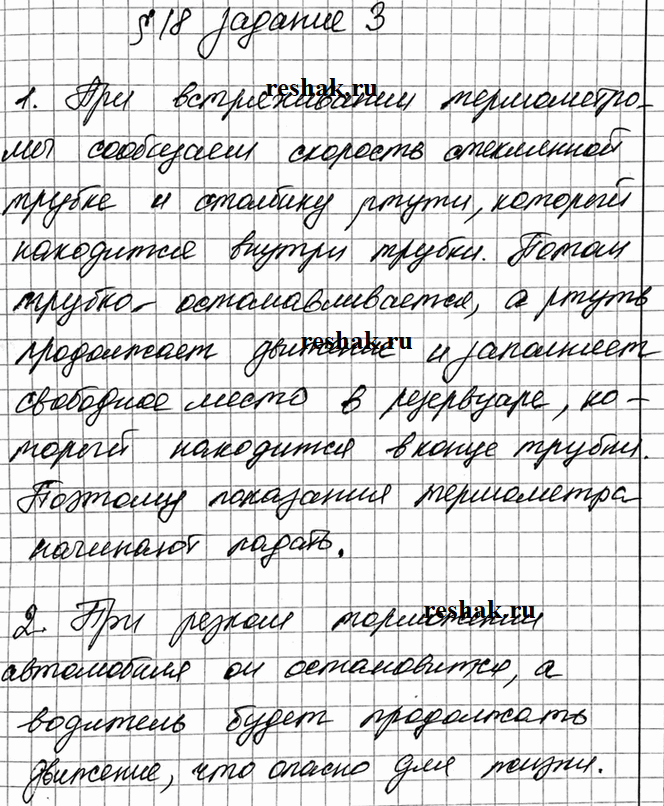 § 18 задание 3
reshak.ru
1. При встряхивании термометро-
мы сообщаем скорость стеклянной
трубке и столбику ртути, который
находится внутри трубки. Потом
трубка останавливается, а ртуть
reshak.ru
продолжает движение и заполняет
свободное место в резервуаре, ко-
торый находится в конце трубки.
Поэтому показания термометра
начинают падать.
reshak.ru
2. При резком торможении
автомобиля он остановится, а
водитель будет продолжать
движение, что опасно для жизни.